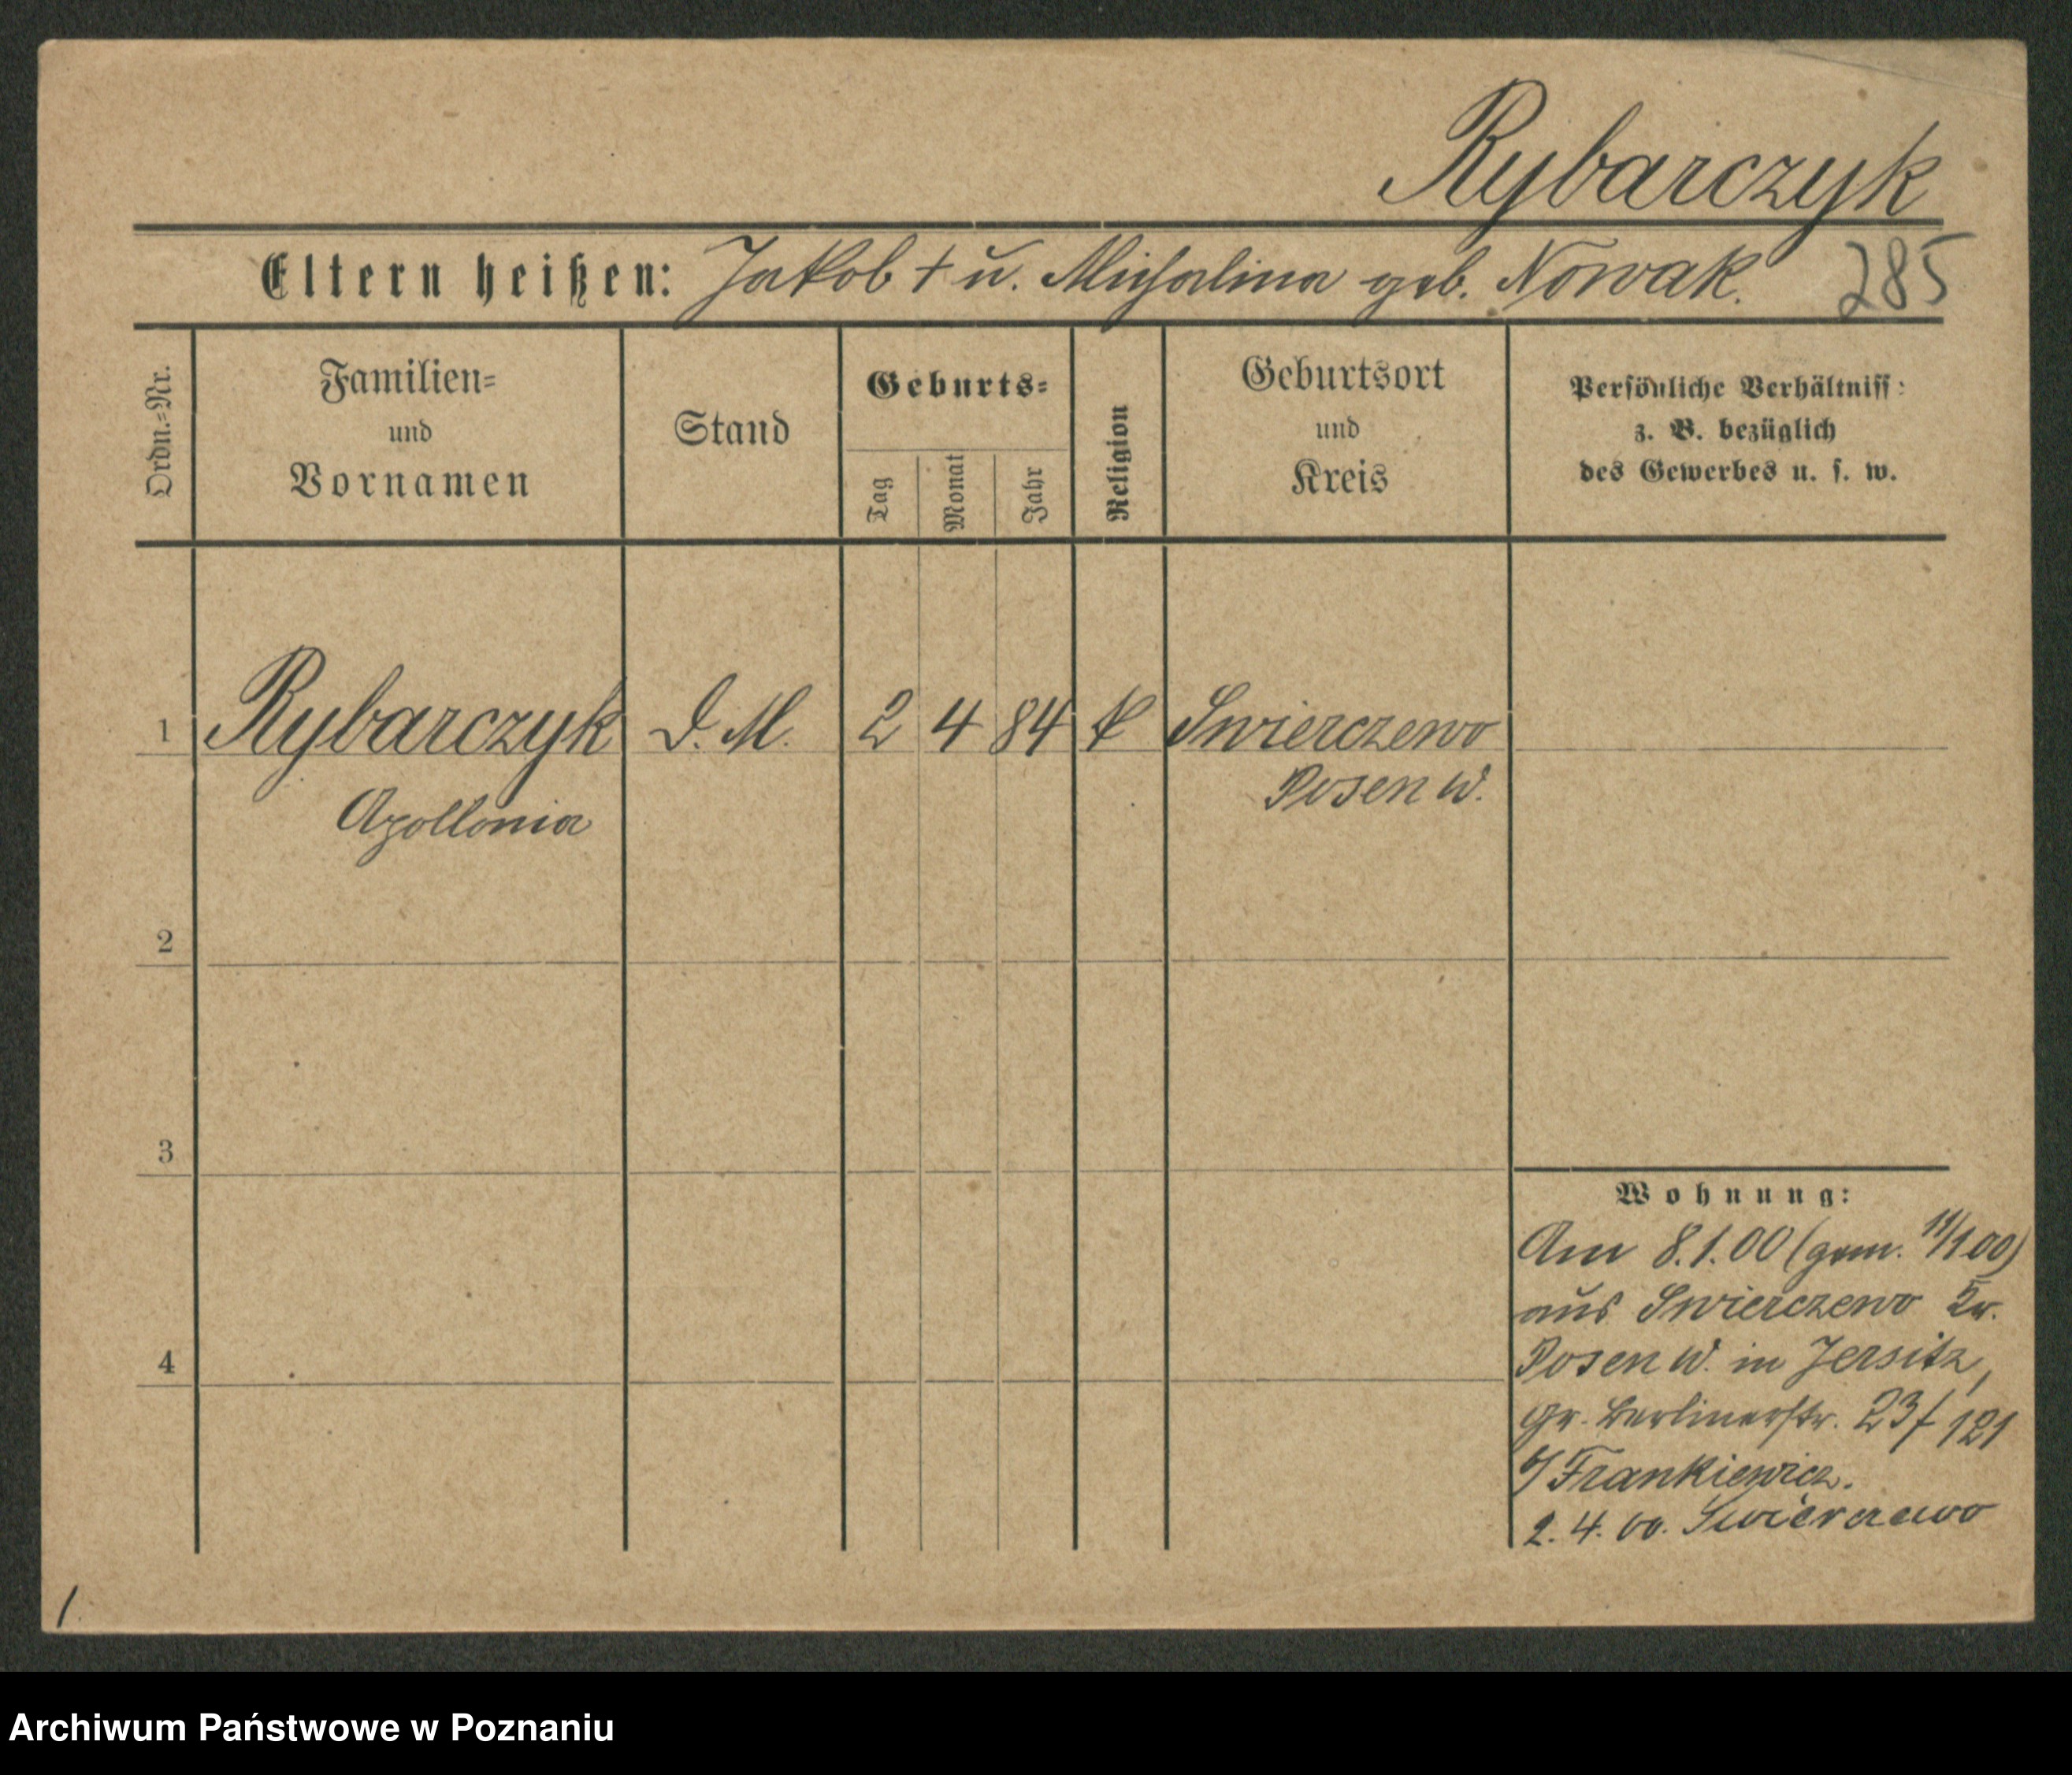 Rybarczyk
Eltern heißen: Jakob † u. Michalina geb. Nowak. 285
Ordn.=Nr.
Familien=
und
Vornamen
Stand
Geburts=
Tag
Monat
Jahr
Religion
Geburtsort
und
Kreis
Persönliche Verhältniss:
z. B. bezüglich
des Gewerbes u. s. w.
1 Rybarczyk D. M. 2 4 84 k Swierczewo
Apollonia Posen W.
2
3
4
Wohnung:
Am 8.1.00 (gem. 11/1 00)
aus Swierczewo Kr.
Posen W. in Jersitz,
Gr. Berlinerstr. 23 / 121
b/ Frankiewicz.
2. 4. 00. Swierczewo
1
Archiwum Państwowe w Poznaniu